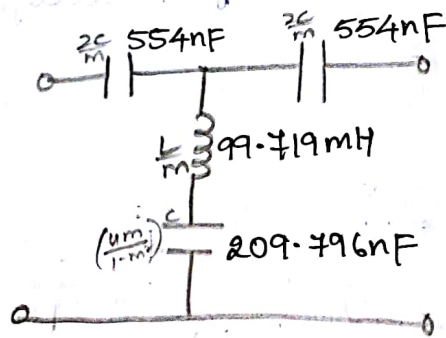 2c/m 554nF
2c/m 554nF
L/m 99.719mH
(4m/1-m²) c 209.796nF